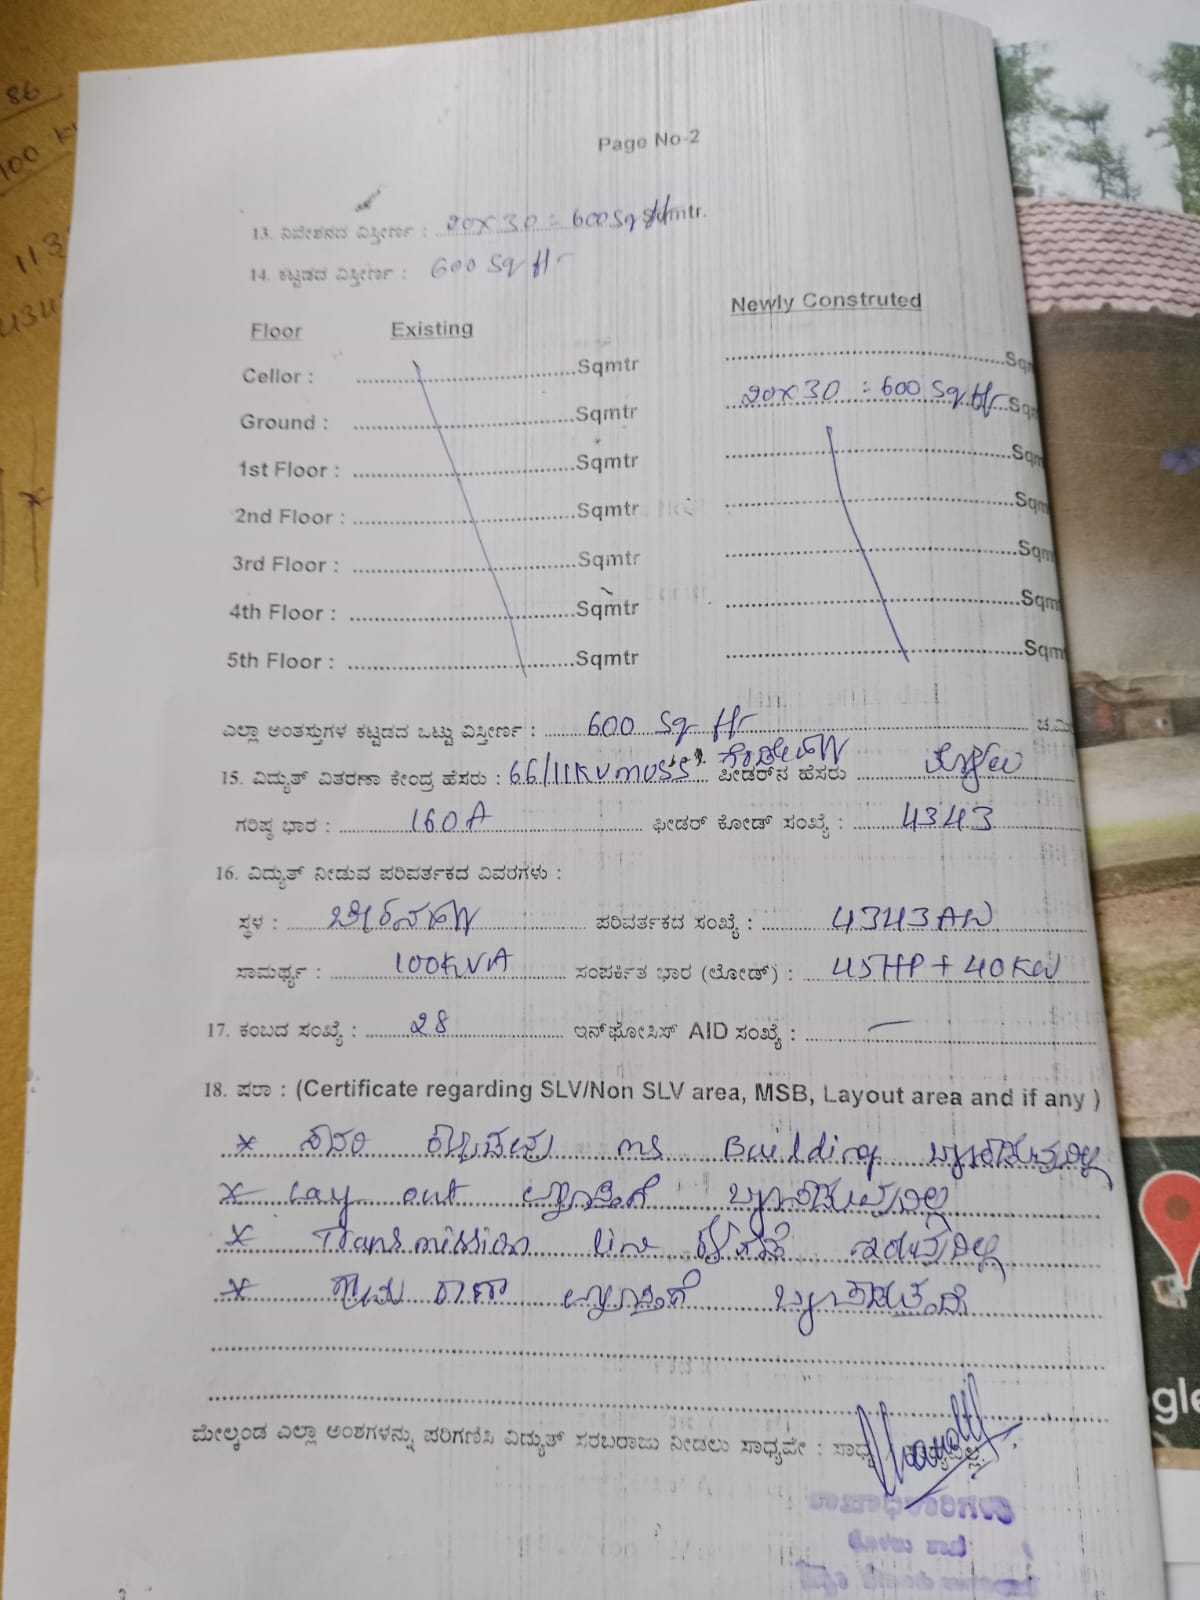 86
Page No-2
13. ನಿವೇಶನದ ವಿಸ್ತೀರ್ಣ : 20x30 = 600 Sq mtr.
14. ಕಟ್ಟಡದ ವಿಸ್ತೀರ್ಣ : 600 Sq ftr
Floor Existing Newly Construted
Cellor : Sqmtr Sq
Ground : Sqmtr 20x30 = 600 Sq ftr Sq
1st Floor : Sqmtr Sqm
2nd Floor : Sqmtr Sqm
3rd Floor : Sqmtr Sqm
4th Floor : Sqmtr Sqm
5th Floor : Sqmtr Sqm
ಎಲ್ಲಾ ಅಂತಸ್ತುಗಳ ಕಟ್ಟಡದ ಒಟ್ಟು ವಿಸ್ತೀರ್ಣ : 600 Sq ftr ಚ.ಮಿ
15. ವಿದ್ಯುತ್ ವಿತರಣಾ ಕೇಂದ್ರ ಹೆಸರು : 66/11KV muss ಫೀಡರ್‌ನ ಹೆಸರು
ಗರಿಷ್ಠ ಭಾರ : 160A ಫೀಡರ್ ಕೋಡ್ ಸಂಖ್ಯೆ : 4343
16. ವಿದ್ಯುತ್ ನೀಡುವ ಪರಿವರ್ತಕದ ವಿವರಗಳು :
ಸ್ಥಳ : ಪರಿವರ್ತಕದ ಸಂಖ್ಯೆ : 4343AW
ಸಾಮರ್ಥ್ಯ : 100KVA ಸಂಪರ್ಕಿತ ಭಾರ (ಲೋಡ್) : 45HP + 40KW
17. ಕಂಬದ ಸಂಖ್ಯೆ : 28 ಇನ್‌ಫೋಸಿಸ್ AID ಸಂಖ್ಯೆ : —
18. ಷರಾ : (Certificate regarding SLV/Non SLV area, MSB, Layout area and if any )
* ಸದರಿ ಕಟ್ಟಡವು ms Building ವ್ಯಾಪ್ತಿಗೆ ಬರುವುದಿಲ್ಲ
* Lay out ವ್ಯಾಪ್ತಿಗೆ ಬರುವುದಿಲ್ಲ
* Transmission line ಕೆಳಗಡೆ ಇರುವುದಿಲ್ಲ
* ಗ್ರಾಮ ಠಾಣಾ ವ್ಯಾಪ್ತಿಗೆ ಬರುತ್ತದೆ
ಮೇಲ್ಕಂಡ ಎಲ್ಲಾ ಅಂಶಗಳನ್ನು ಪರಿಗಣಿಸಿ ವಿದ್ಯುತ್ ಸರಬರಾಜು ನೀಡಲು ಸಾಧ್ಯವೇ : ಸಾಧ್ಯ / ಸಾಧ್ಯವಿಲ್ಲ.
ಶಾಖಾಧಿಕಾರಿಗಳು